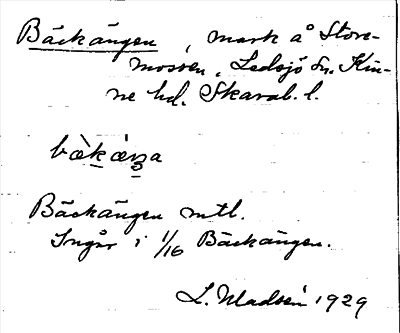 Bäckängen, mark å Store-
mossen, Ledsjö sn. Kin-
ne hd. Skarab. l.
Bäckängen mtl.
Ingår i 1/16 Bäckängen.
L. Madsén 1929